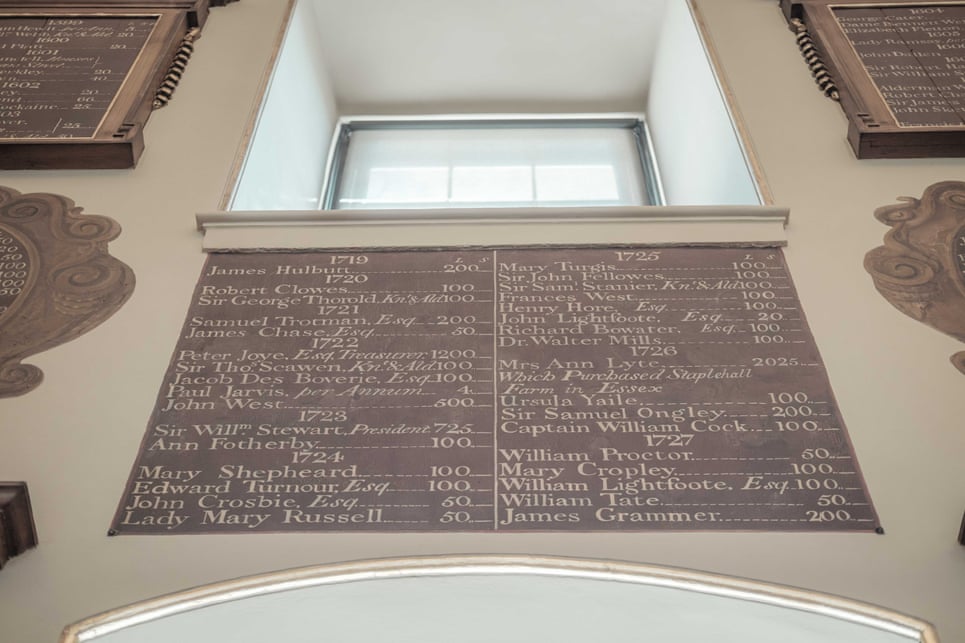 1599
1600
1601
1602
1719 L S
James Hulbutt 200
1720
Robert Clowes 100
Sir George Thorold, Knt. & Ald 100
1721
Samuel Trotman, Esq. 200
James Chase, Esq. 50
1722
Peter Joye, Esq. Treasurer 1200
Sir Thos. Scawen, Knt. & Ald 100
Jacob Des Boverie, Esq. 100
Paul Jarvis, per Annum 4
John West 500
1723
Sir Willm Stewart, President 725
Ann Fotherby 100
1724
Mary Shepheard 100
Edward Turnour, Esq. 100
John Crosbie, Esq. 50
Lady Mary Russell 50
1725 L S
Mary Turgis 100
Sir John Fellowes 100
Sir Saml. Stanier, Knt. & Ald 100
Frances West 100
Henry Hore, Esq. 100
John Lightfoote, Esq. 20
Richard Bowater, Esq. 100
Dr. Walter Mills 100
1726
Mrs Ann Lyte 2025
Which Purchased Staplehall
Farm in Essex
Ursula Yaile 100
Sir Samuel Ongley 200
Captain William Cock 100
1727
William Proctor 50
Mary Cropley 100
William Lightfoote, Esq. 100
William Tate 50
James Grammer 200
1604
George Cater
Dame Bennett
Elizabeth
Lady
John
Sir William
Alderman
Robert
Sir James
John